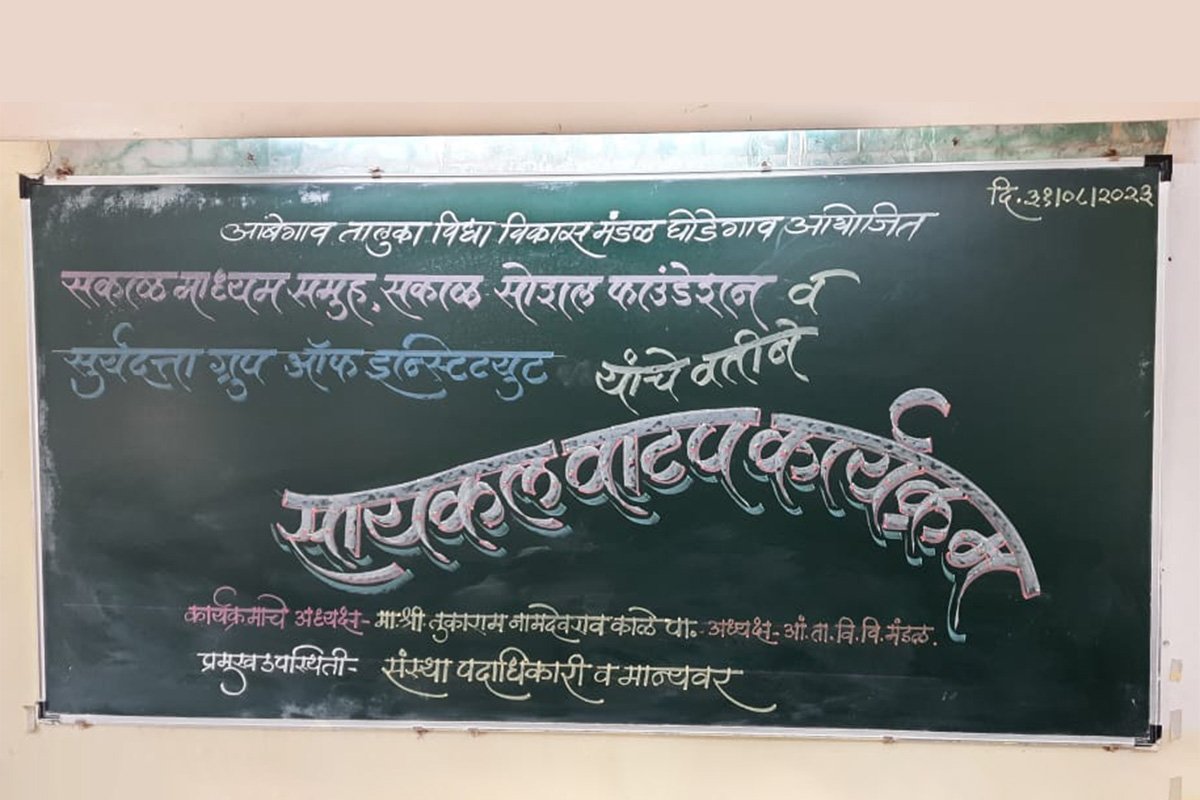 दि.३१/०८/२०२३
आंबेगाव तालुका विद्या विकास मंडळ घोडेगाव आयोजित
सकाळ माध्यम समुह, सकाळ सोशल फाउंडेशन व
सुर्यदत्ता ग्रुप ऑफ इन्स्टिटयुट यांचे वतीने
सायकल वाटप कार्यक्रम
कार्यक्रमाचे अध्यक्ष- मा.श्री. तुकाराम नामदेवराव काळे पा. अध्यक्ष- आं.ता.वि.वि.मंडळ.
प्रमुख उपस्थिती- संस्था पदाधिकारी व मान्यवर